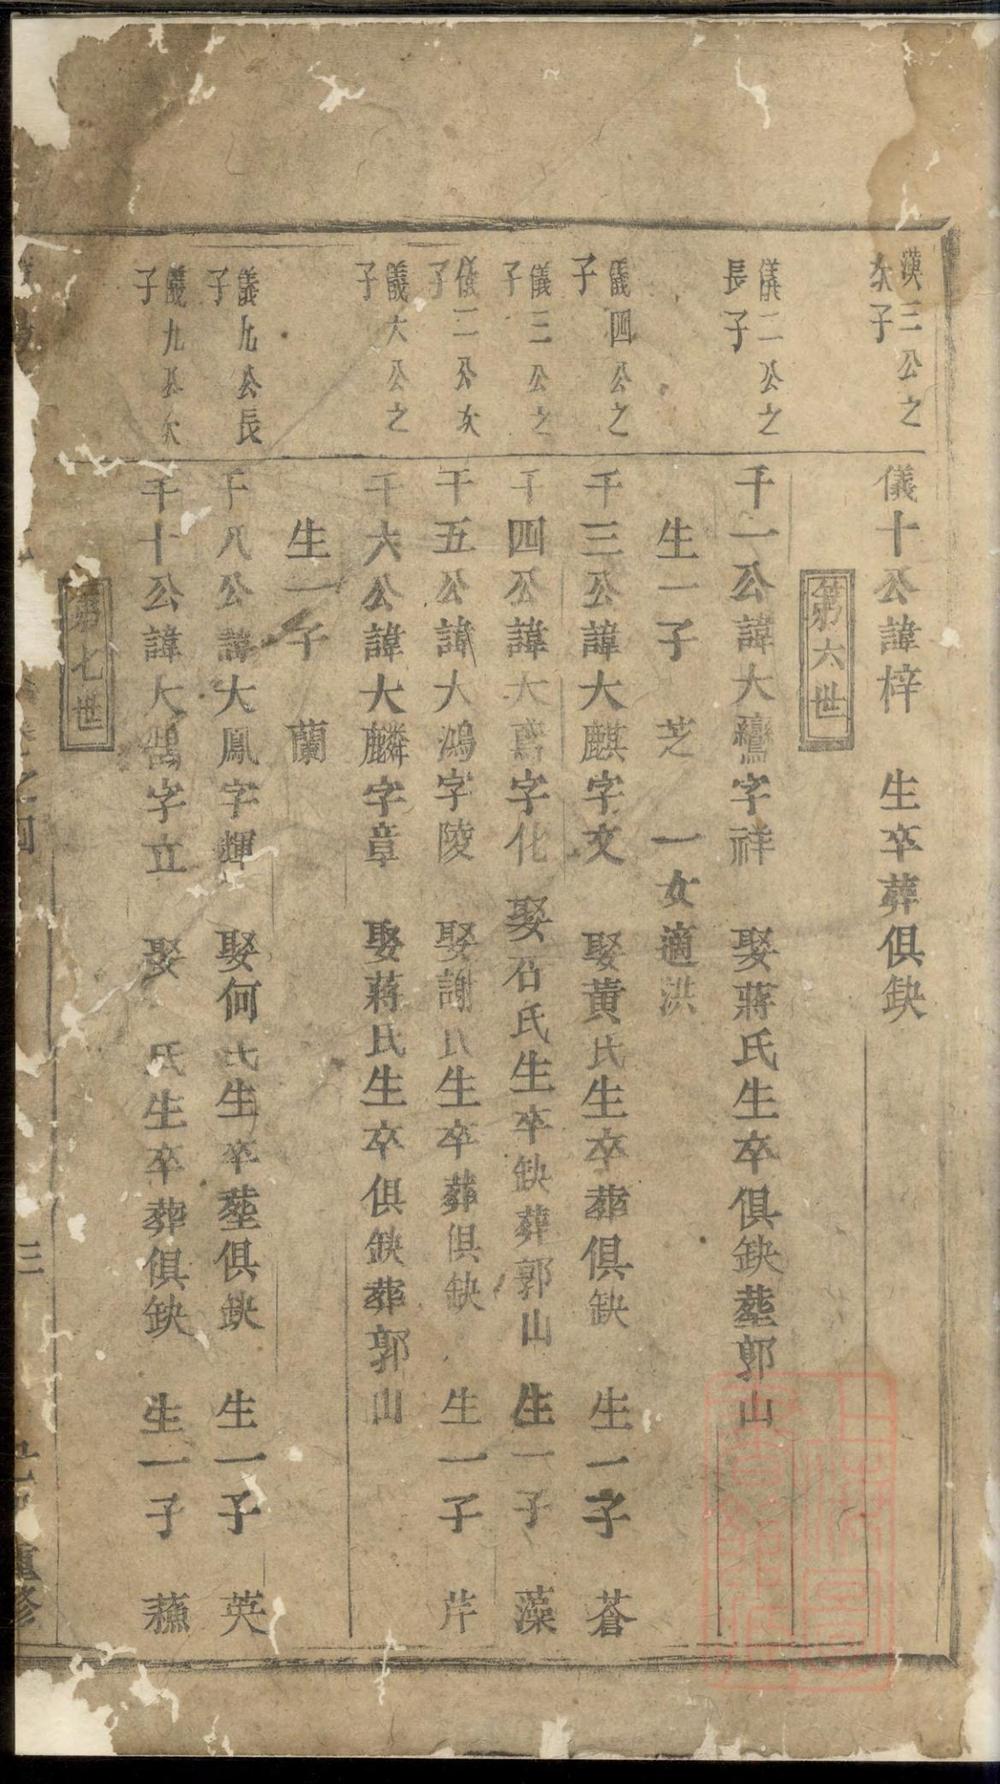 漢三公之次子
儀十公諱梓 生卒葬俱缺
第六世
儀二公之長子
千一公諱大鸞字祥 娶蔣氏生卒俱缺塟郭山
生一子 芝 一女適洪
儀四公之子
千三公諱大麒字文 娶黄氏生卒葬俱缺 生一子 蒼
儀三公之子
千四公諱大 字化 娶石氏生卒缺葬郭山 生一子 藻
儀二公次子
千五公諱大鴻字陵 娶謝氏生卒葬俱缺 生一子 芹
儀六公之子
千六公諱大麟字章 娶蔣氏生卒俱缺葬郭山
生一子 蘭
儀九公長子
千八公諱大鳳字輝 娶何氏生卒塟俱缺 生一子 英
儀九公次子
千十公諱大鵠字立 娶 氏生卒葬俱缺 生一子 蘓
第七世
卷之四
三
重修